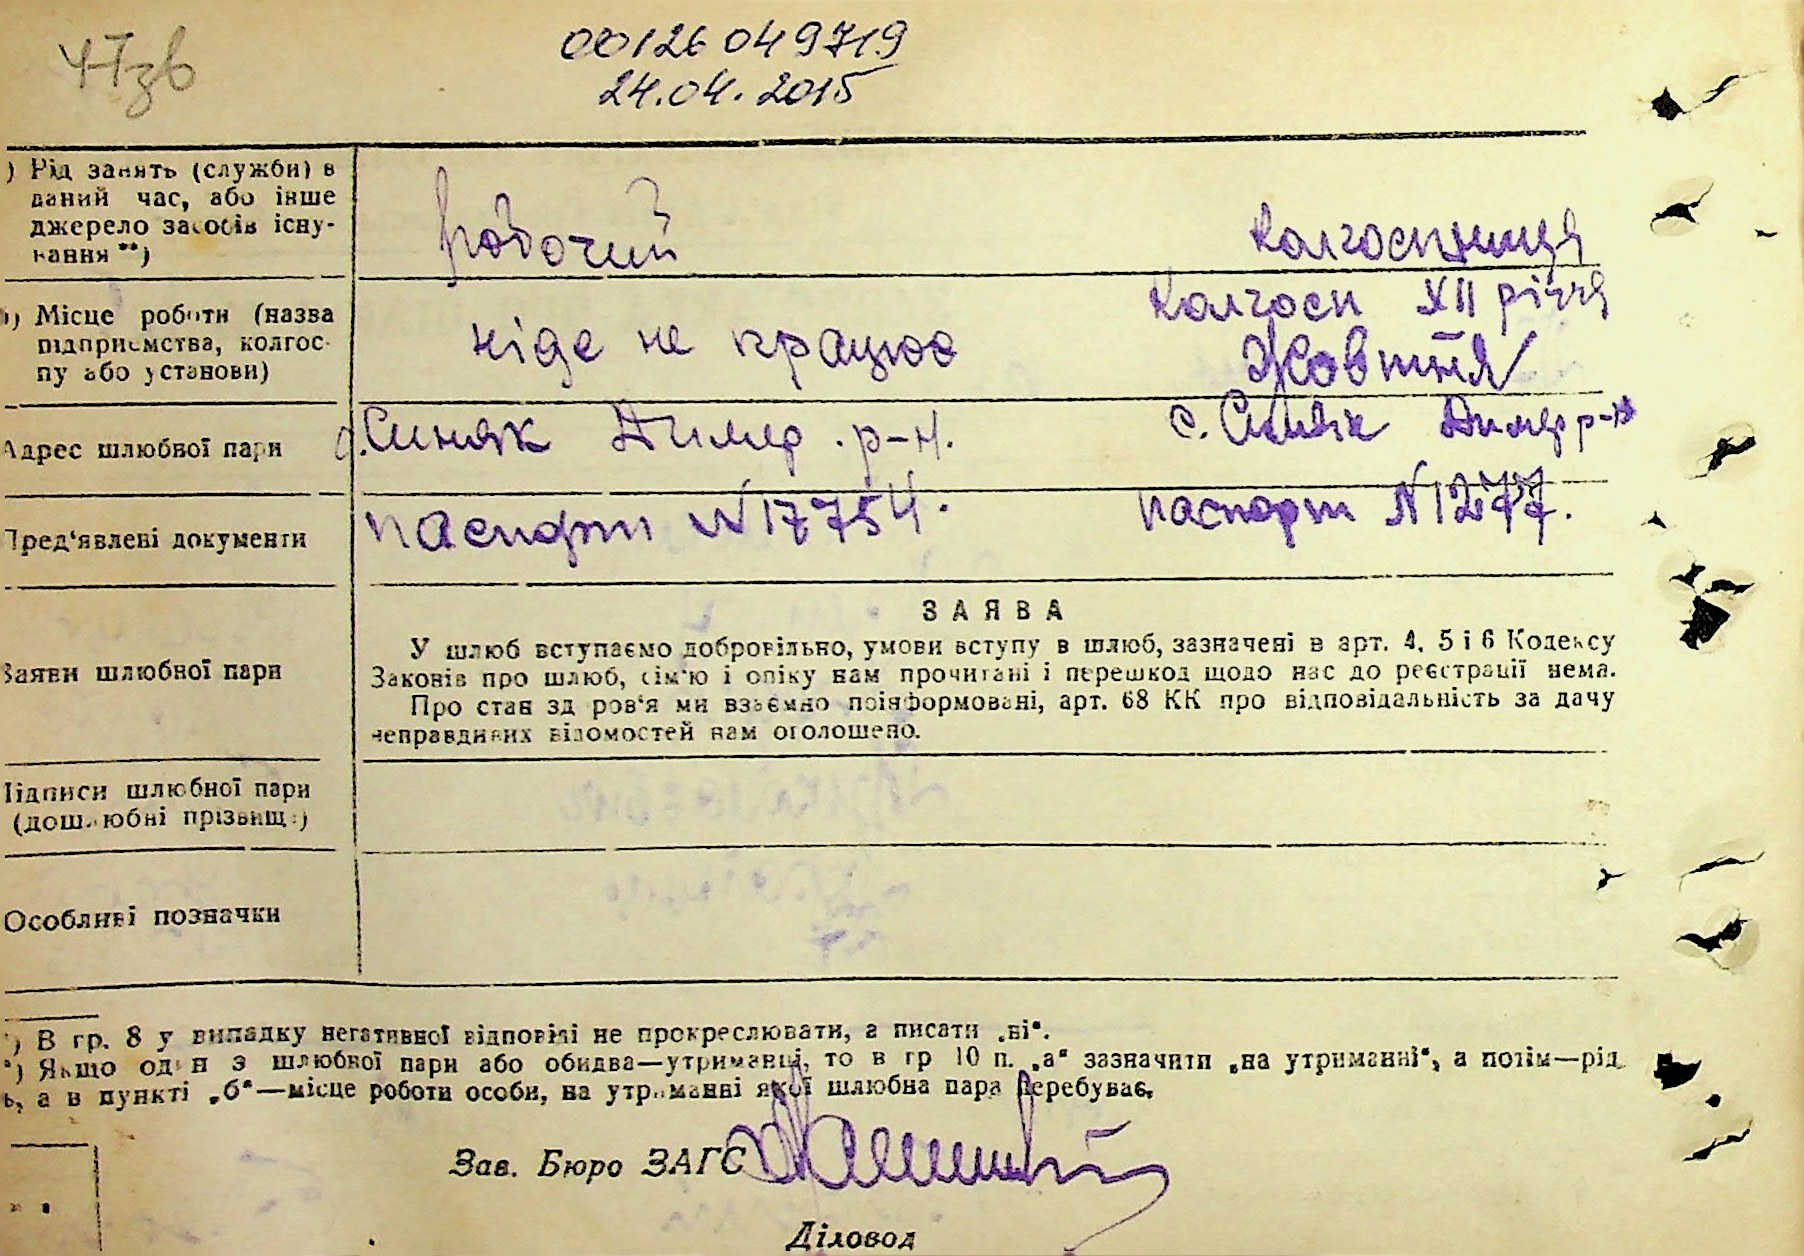 47зв
00126 049719
24.04.2015
) Рід занять (служби) в
даний час, або інше
джерело засобів існу-
вання **)
робочий
колгоспниця
) Місце роботи (назва
підприємства, колгос-
пу або установи)
ніде не працює
колгосп XII річчя
Жовтня
Адрес шлюбної пари
с. Синяк Димер. р-н.
с. Синяк Димер р-н
Пред'явлені документи
паспорт N 17754.
паспорт N 1277.
Заяви шлюбної пари
ЗАЯВА
У шлюб вступаємо добровільно, умови вступу в шлюб, зазначені в арт. 4, 5 і 6 Кодексу
Законів про шлюб, сім'ю і опіку нам прочитані і перешкод щодо нас до реєстрації нема.
Про стан здоров'я ми взаємно поінформовані, арт. 68 КК про відповідальність за дачу
неправдивих відомостей нам оголошено.
Підписи шлюбної пари
(дошлюбні прізвища)
Особливі позначки
*) В гр. 8 у випадку негативної відповіді не прокреслювати, а писати „ні“.
*) Якщо один з шлюбної пари або обидва—утриманці, то в гр 10 п. „а“ зазначити „на утриманні“, а потім—рід
ь, а в пункті „б“—місце роботи особи, на утриманні якої шлюбна пара перебуває.
Зав. Бюро ЗАГС
Діловод